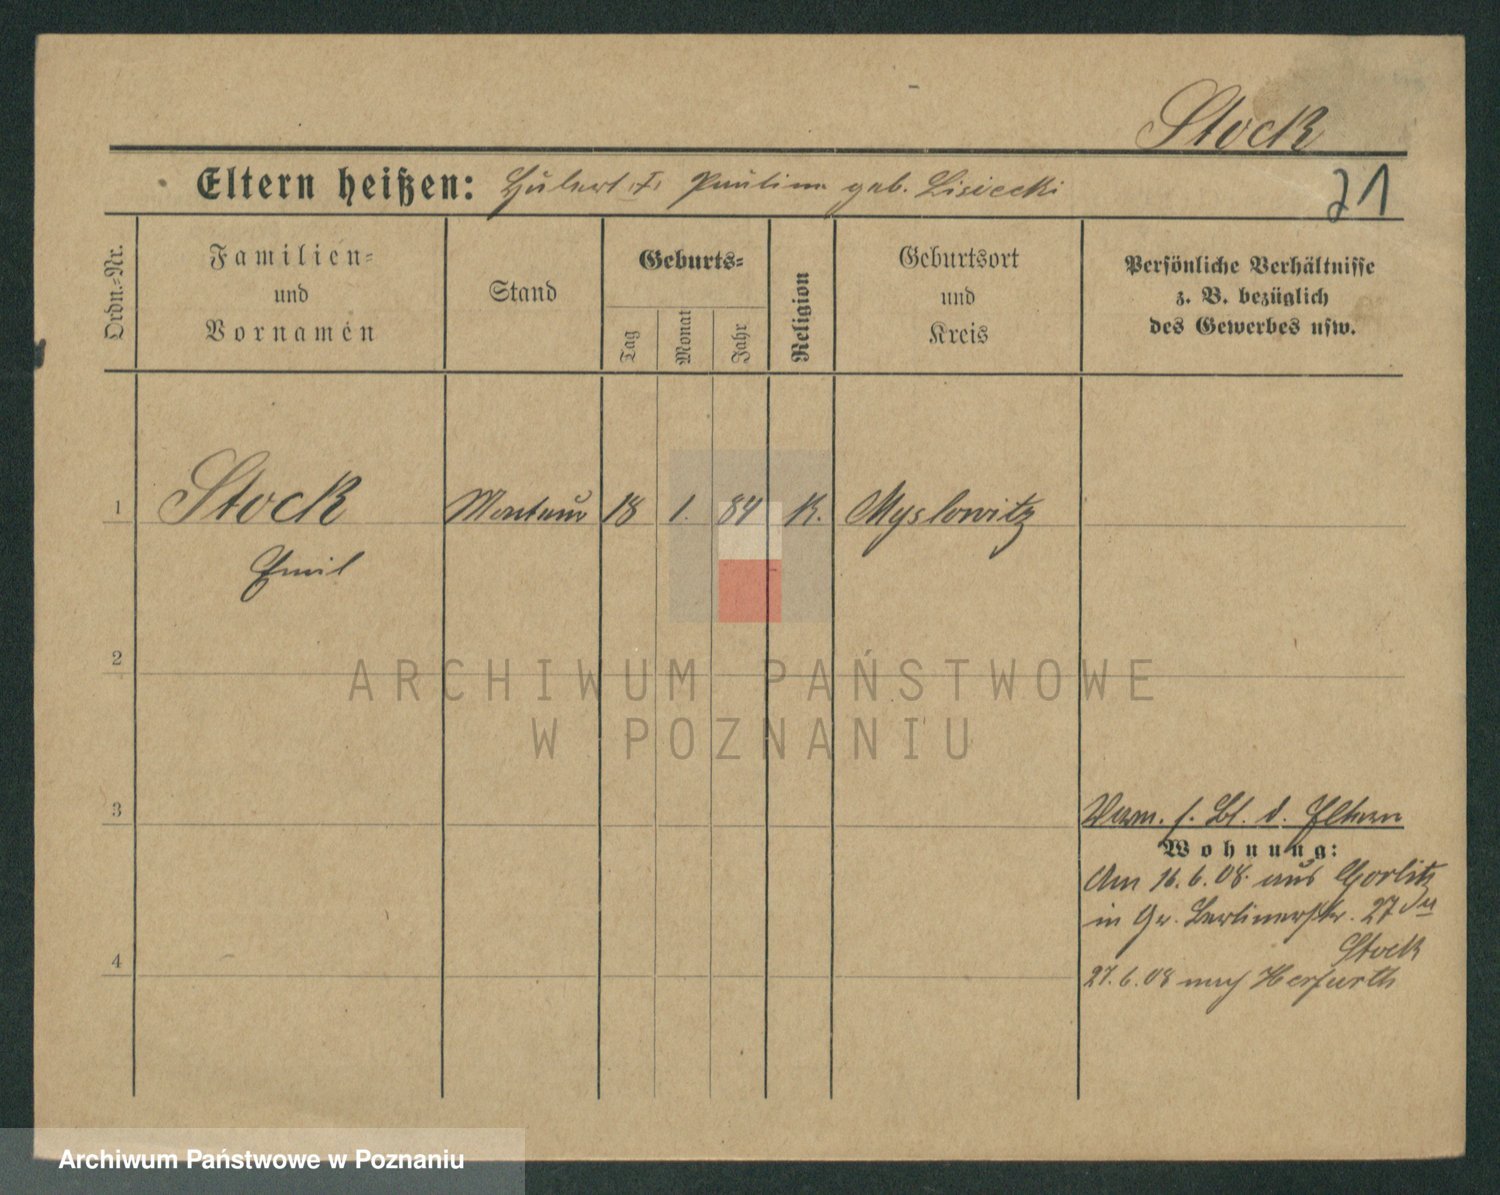 Stock
Eltern heißen: Hubert †, Pauline geb. Lisiecki
21
Ordn.-Nr.
Familien-
und
Vornamen
Stand
Geburts-
Tag
Monat
Jahr
Religion
Geburtsort
und
Kreis
Persönliche Verhältnisse
z. B. bezüglich
des Gewerbes usw.
1 Stock Monteur 18 1. 84 K. Myslowitz
Emil
2
ARCHIWUM PAŃSTWOWE
W POZNANIU
3
Verm. s. Bl. d. Eltern
Wohnung:
Am 16.6.08 aus Görlitz
in Gr. Berlinerstr. 27
Stock
4
27.6.08 nach Herfurth
Archiwum Państwowe w Poznaniu